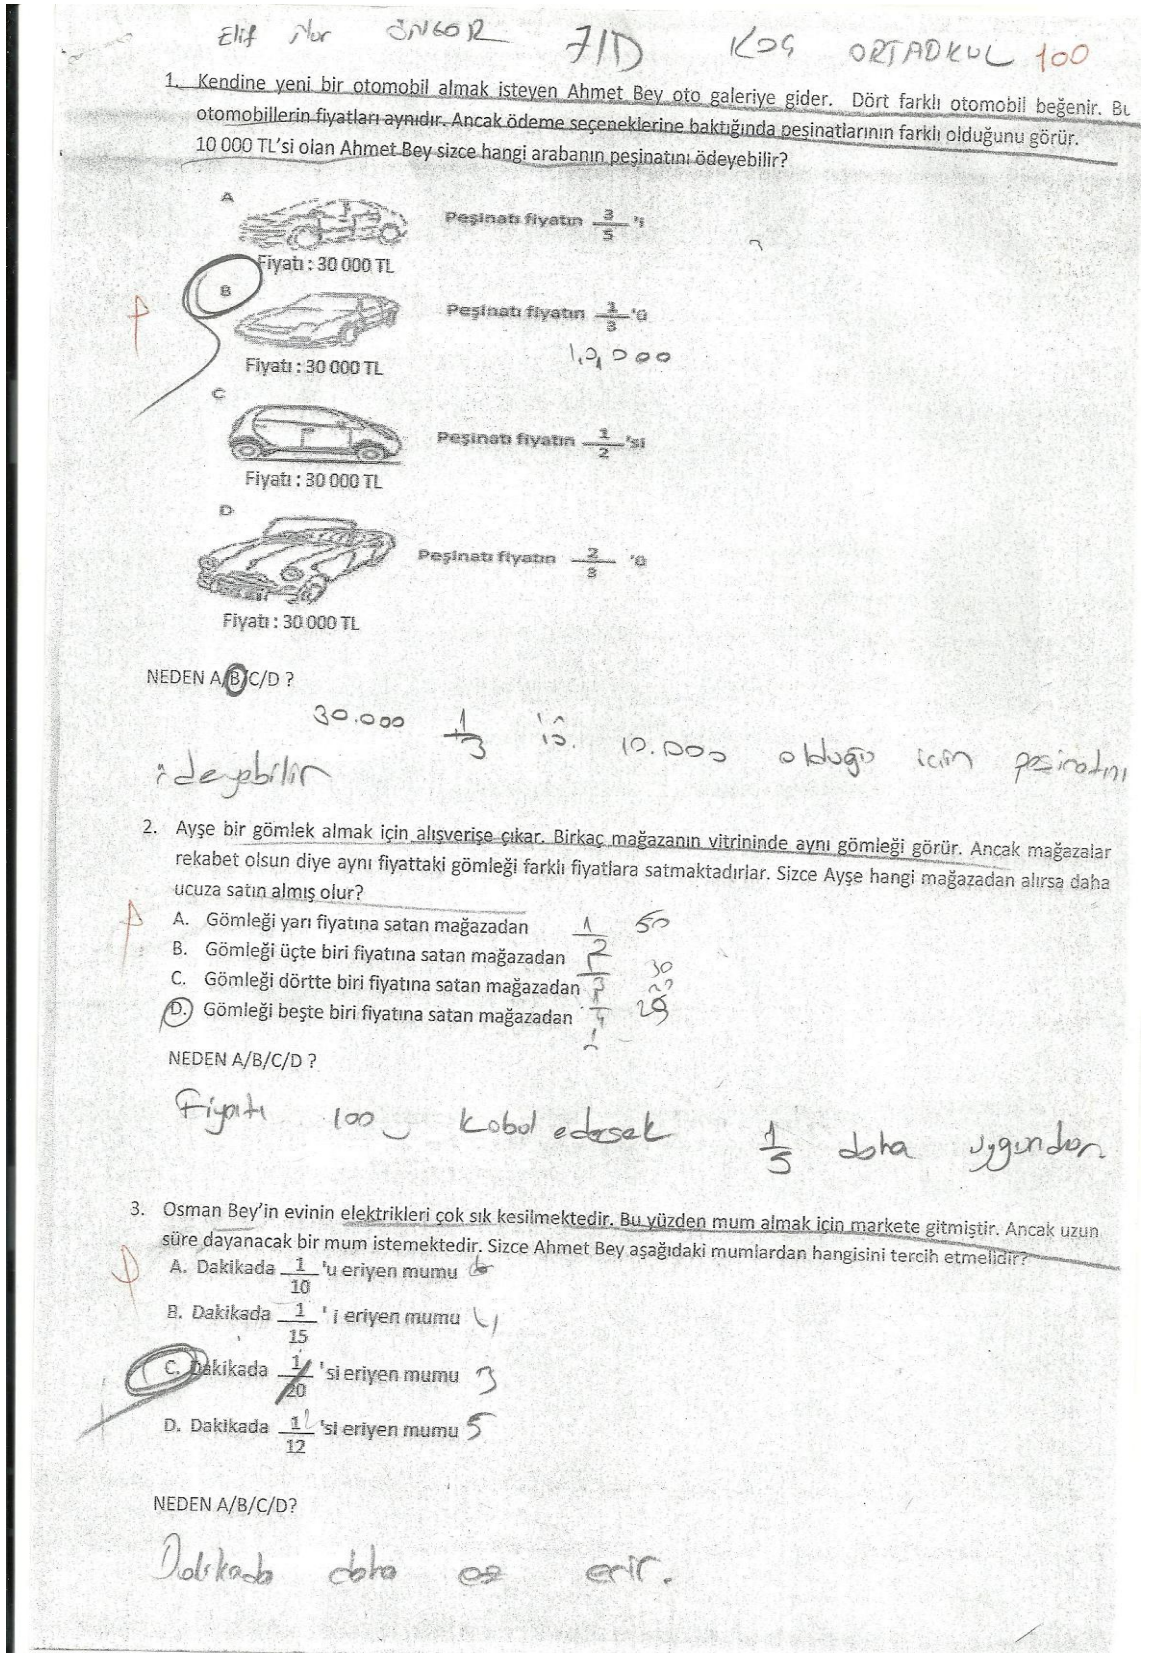 Elif Nur ÖNGÖR 7/D KOÇ ORTAOKUL 100
1. Kendine yeni bir otomobil almak isteyen Ahmet Bey oto galeriye gider. Dört farklı otomobil beğenir. Bu
otomobillerin fiyatları aynıdır. Ancak ödeme seçeneklerine baktığında peşinatlarının farklı olduğunu görür.
10 000 TL'si olan Ahmet Bey sizce hangi arabanın peşinatını ödeyebilir?
A
Peşinatı fiyatın 3/5 'i
Fiyatı : 30 000 TL
B
Peşinatı fiyatın 1/3 'ü
10,000
Fiyatı : 30 000 TL
C
Peşinatı fiyatın 1/2 'si
Fiyatı : 30 000 TL
D
Peşinatı fiyatın 2/3 'ü
Fiyatı : 30 000 TL
NEDEN A/B/C/D ?
30.000 1/3 'ü 10.000 olduğu için peşinatını
ödeyebilir
2. Ayşe bir gömlek almak için alışverişe çıkar. Birkaç mağazanın vitrininde aynı gömleği görür. Ancak mağazalar
rekabet olsun diye aynı fiyattaki gömleği farklı fiyatlara satmaktadırlar. Sizce Ayşe hangi mağazadan alırsa daha
ucuza satın almış olur?
A. Gömleği yarı fiyatına satan mağazadan 1/2 50
B. Gömleği üçte biri fiyatına satan mağazadan 30
C. Gömleği dörtte biri fiyatına satan mağazadan
D. Gömleği beşte biri fiyatına satan mağazadan
NEDEN A/B/C/D ?
Fiyatı 100 kabul edersek 1/5 daha uygundur.
3. Osman Bey'in evinin elektrikleri çok sık kesilmektedir. Bu yüzden mum almak için markete gitmiştir. Ancak uzun
süre dayanacak bir mum istemektedir. Sizce Ahmet Bey aşağıdaki mumlardan hangisini tercih etmelidir?
A. Dakikada 1/10 'u eriyen mumu 6
B. Dakikada 1/15 ' i eriyen mumu 4
C. Dakikada 1/20 'si eriyen mumu 3
D. Dakikada 1/12 'si eriyen mumu 5
NEDEN A/B/C/D?
Dakikada daha az erir.